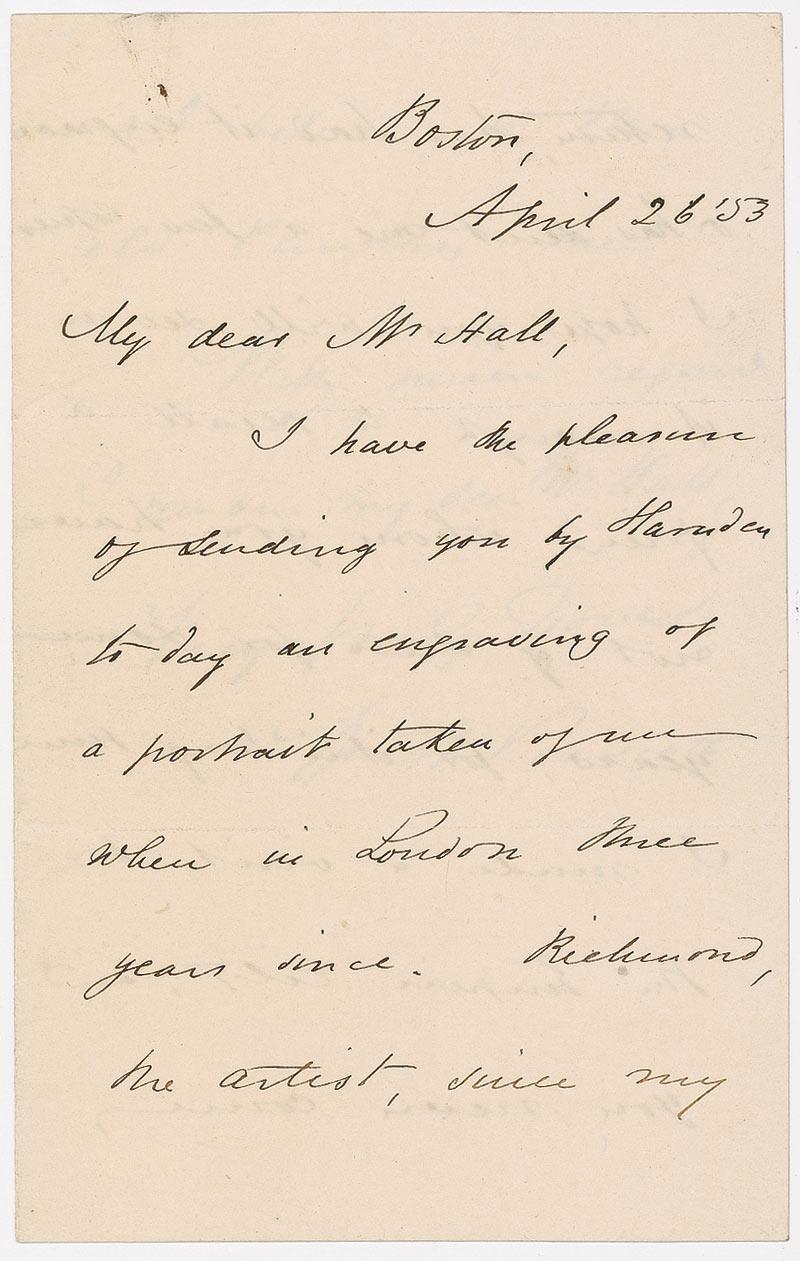 Boston,
April 26 '53
My dear Mr Hall,
I have the pleasure
of sending you by Harnden
to day an engraving of
a portrait taken of me
when in London three
years since. Richmond,
the artist, since my